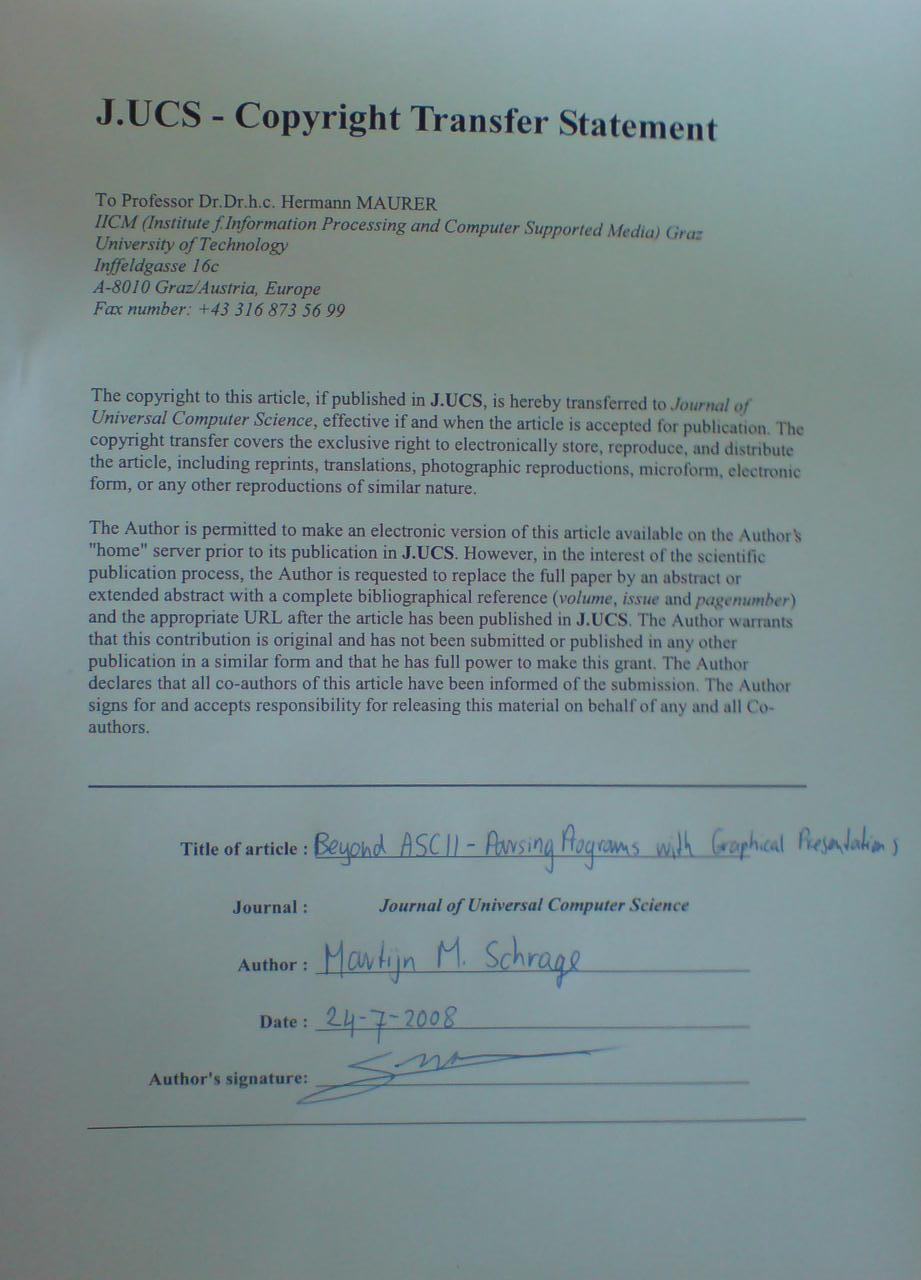 J.UCS - Copyright Transfer Statement
To Professor Dr.Dr.h.c. Hermann MAURER
IICM (Institute f.Information Processing and Computer Supported Media) Graz
University of Technology
Inffeldgasse 16c
A-8010 Graz/Austria, Europe
Fax number: +43 316 873 56 99
The copyright to this article, if published in J.UCS, is hereby transferred to Journal of
Universal Computer Science, effective if and when the article is accepted for publication. The
copyright transfer covers the exclusive right to electronically store, reproduce, and distribute
the article, including reprints, translations, photographic reproductions, microform, electronic
form, or any other reproductions of similar nature.
The Author is permitted to make an electronic version of this article available on the Author's
"home" server prior to its publication in J.UCS. However, in the interest of the scientific
publication process, the Author is requested to replace the full paper by an abstract or
extended abstract with a complete bibliographical reference (volume, issue and pagenumber)
and the appropriate URL after the article has been published in J.UCS. The Author warrants
that this contribution is original and has not been submitted or published in any other
publication in a similar form and that he has full power to make this grant. The Author
declares that all co-authors of this article have been informed of the submission. The Author
signs for and accepts responsibility for releasing this material on behalf of any and all Co-
authors.
Title of article : Beyond ASCII - Parsing Programs with Graphical Presentations
Journal : Journal of Universal Computer Science
Author : Martijn M. Schrage
Date : 24-7-2008
Author's signature: